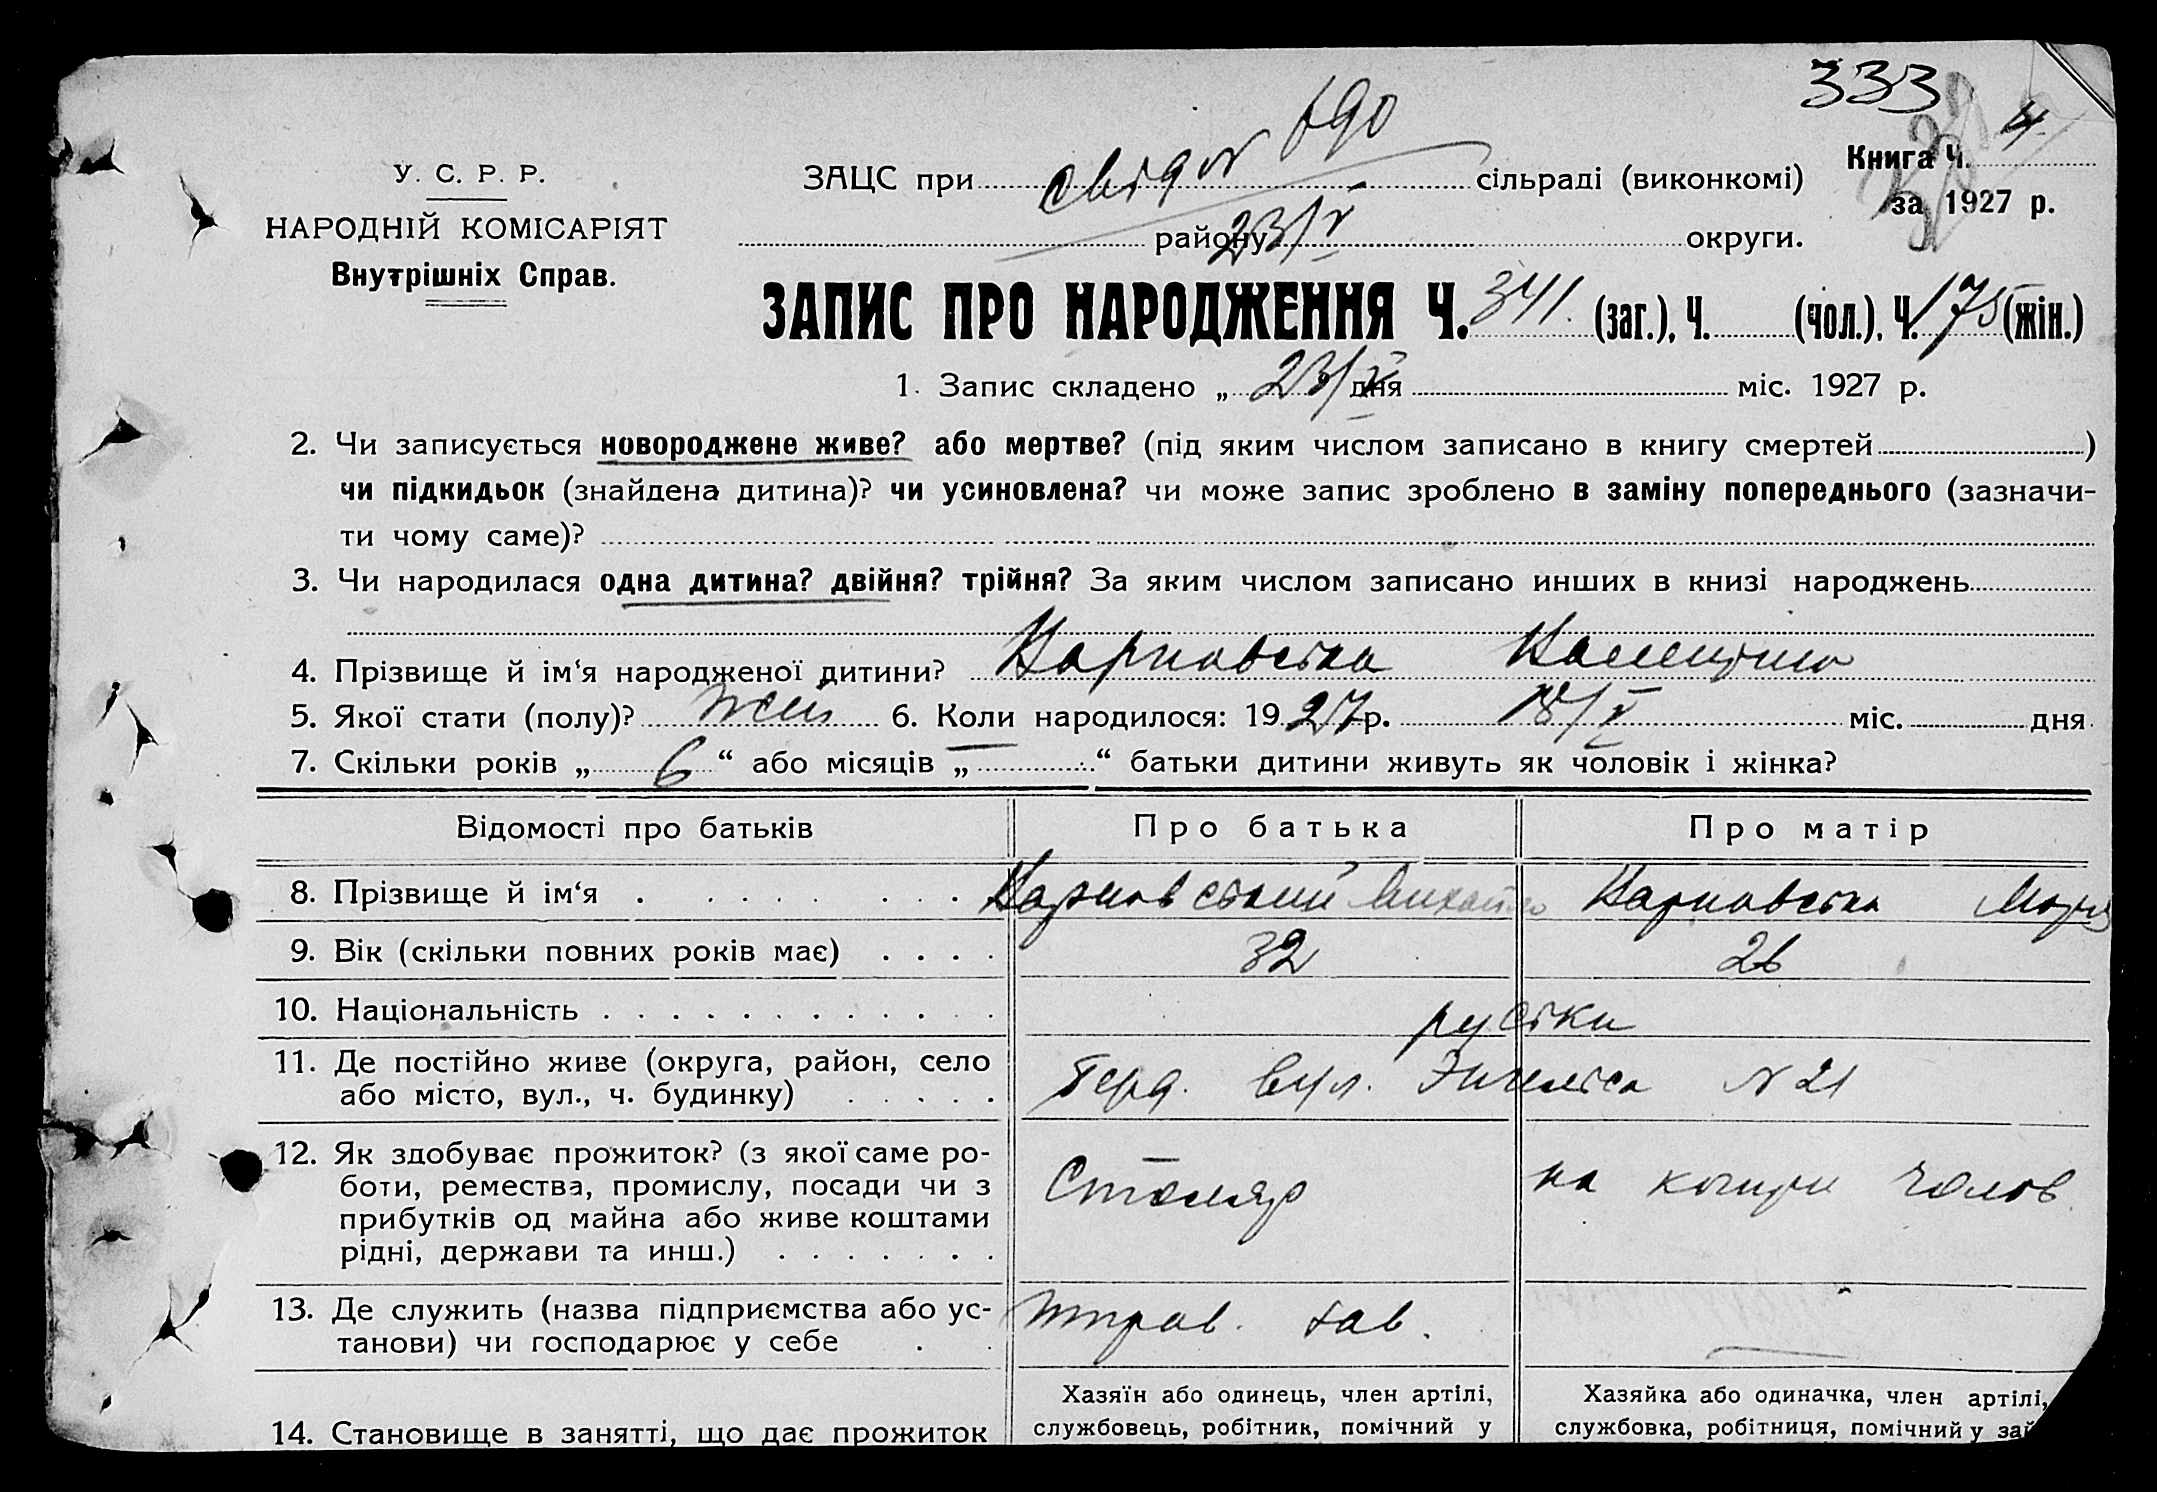 333
690
У. С. Р. Р.
ЗАЦС при свід N сільраді (виконкомі)
Книга Ч. 4.
за 1927 р.
НАРОДНІЙ КОМІСАРІЯТ
району 23/V округи.
Внутрішніх Справ.
ЗАПИС ПРО НАРОДЖЕННЯ Ч. 341. (заг.), Ч. (чол.), Ч. 175 (жін.)
1. Запис складено „ 23/V дня міс. 1927 р.
2. Чи записується новороджене живе? або мертве? (під яким числом записано в книгу смертей )
чи підкидьок (знайдена дитина)? чи усиновлена? чи може запис зроблено в заміну попереднього (зазначи-
ти чому саме)?
3. Чи народилася одна дитина? двійня? трійня? За яким числом записано инших в книзі народжень
4. Прізвище й ім‘я народженої дитини? Карповська
5. Якої стати (полу)? жен 6. Коли народилося: 1927 р. 18/V міс. дня
7. Скільки років „ 6 “ або місяців „ — “ батьки дитини живуть як чоловік і жінка?
Відомості про батьків Про батька Про матір
8. Прізвище й ім‘я Карповський Михайло Карповська Марія
9. Вік (скільки повних років має) 32 26
10. Національність руські
11. Де постійно живе (округа, район, село
або місто, вул., ч. будинку)
Берд. вул. Энгельса N 21
12. Як здобуває прожиток? (з якої саме ро-
боти, ремества, промислу, посади чи з
прибутків од майна або живе коштами
рідні, держави та инш.)
Столяр на кошти чолов.
13. Де служить (назва підприємства або ус-
танови) чи господарює у себе
зав. —
14. Становище в занятті, що дає прожиток
Хазяїн або одинець, член артілі,
службовець, робітник, помічний у
Хазяйка або одиначка, член артілі,
службовка, робітниця, помічний у зай